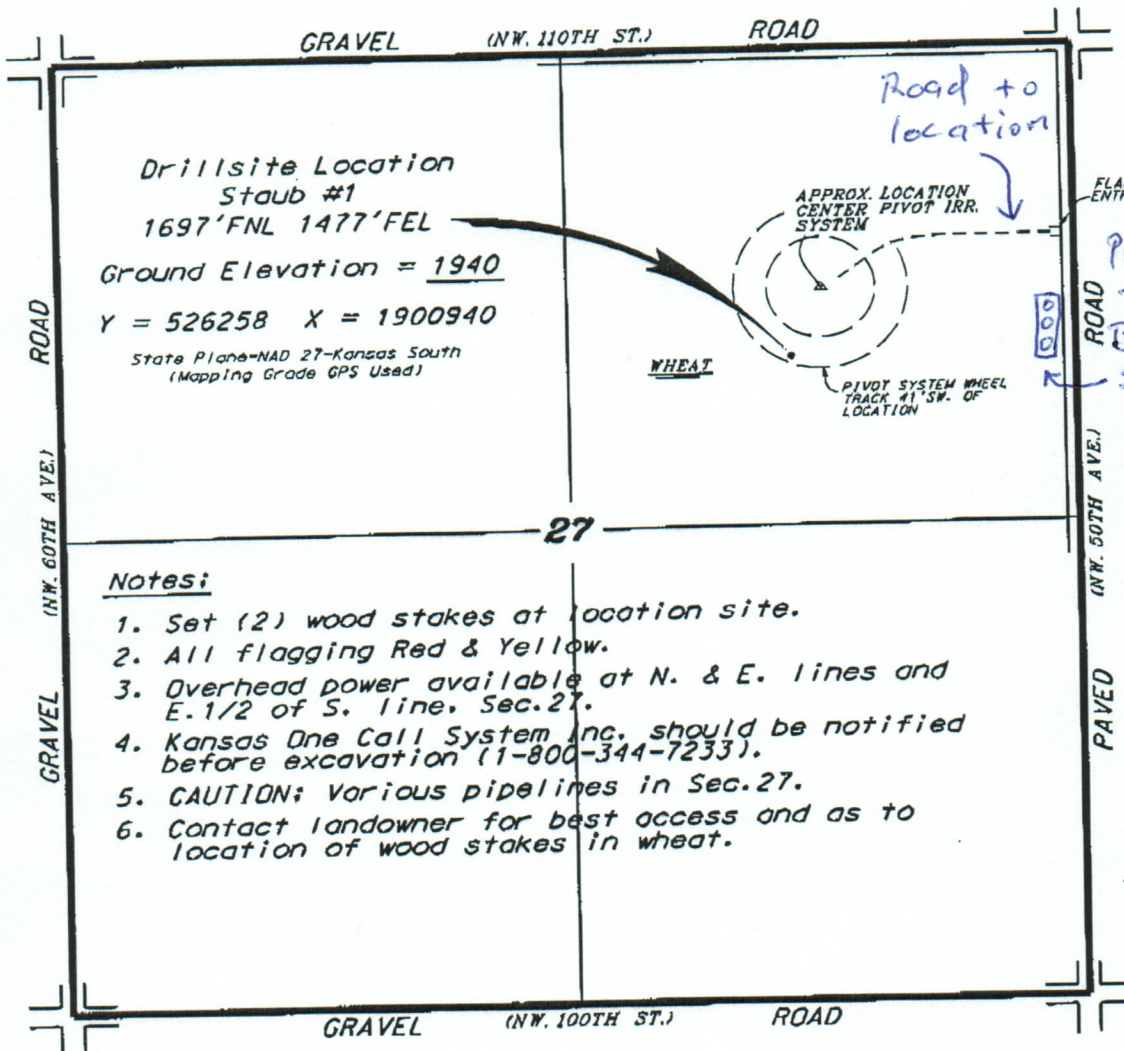 GRAVEL (NW. 110TH ST.) ROAD
Road to
location
Drillsite Location
Staub #1
1697'FNL 1477'FEL
Ground Elevation = 1940
Y = 526258 X = 1900940
State Plane-NAD 27-Kansas South
(Mapping Grade GPS Used)
APPROX. LOCATION
CENTER PIVOT IRR.
SYSTEM
WHEAT
PIVOT SYSTEM WHEEL
TRACK 41'SW. OF
LOCATION
ROAD
(NW. 60TH AVE.)
GRAVEL
ROAD
(NW. 50TH AVE.)
PAVED
27
Notes:
1. Set (2) wood stakes at location site.
2. All flagging Red & Yellow.
3. Overhead power available at N. & E. lines and
E. 1/2 of S. line. Sec.27.
4. Kansas One Call System Inc. should be notified
before excavation (1-800-344-7233).
5. CAUTION: Various pipelines in Sec.27.
6. Contact landowner for best access and as to
location of wood stakes in wheat.
GRAVEL (NW. 100TH ST.) ROAD